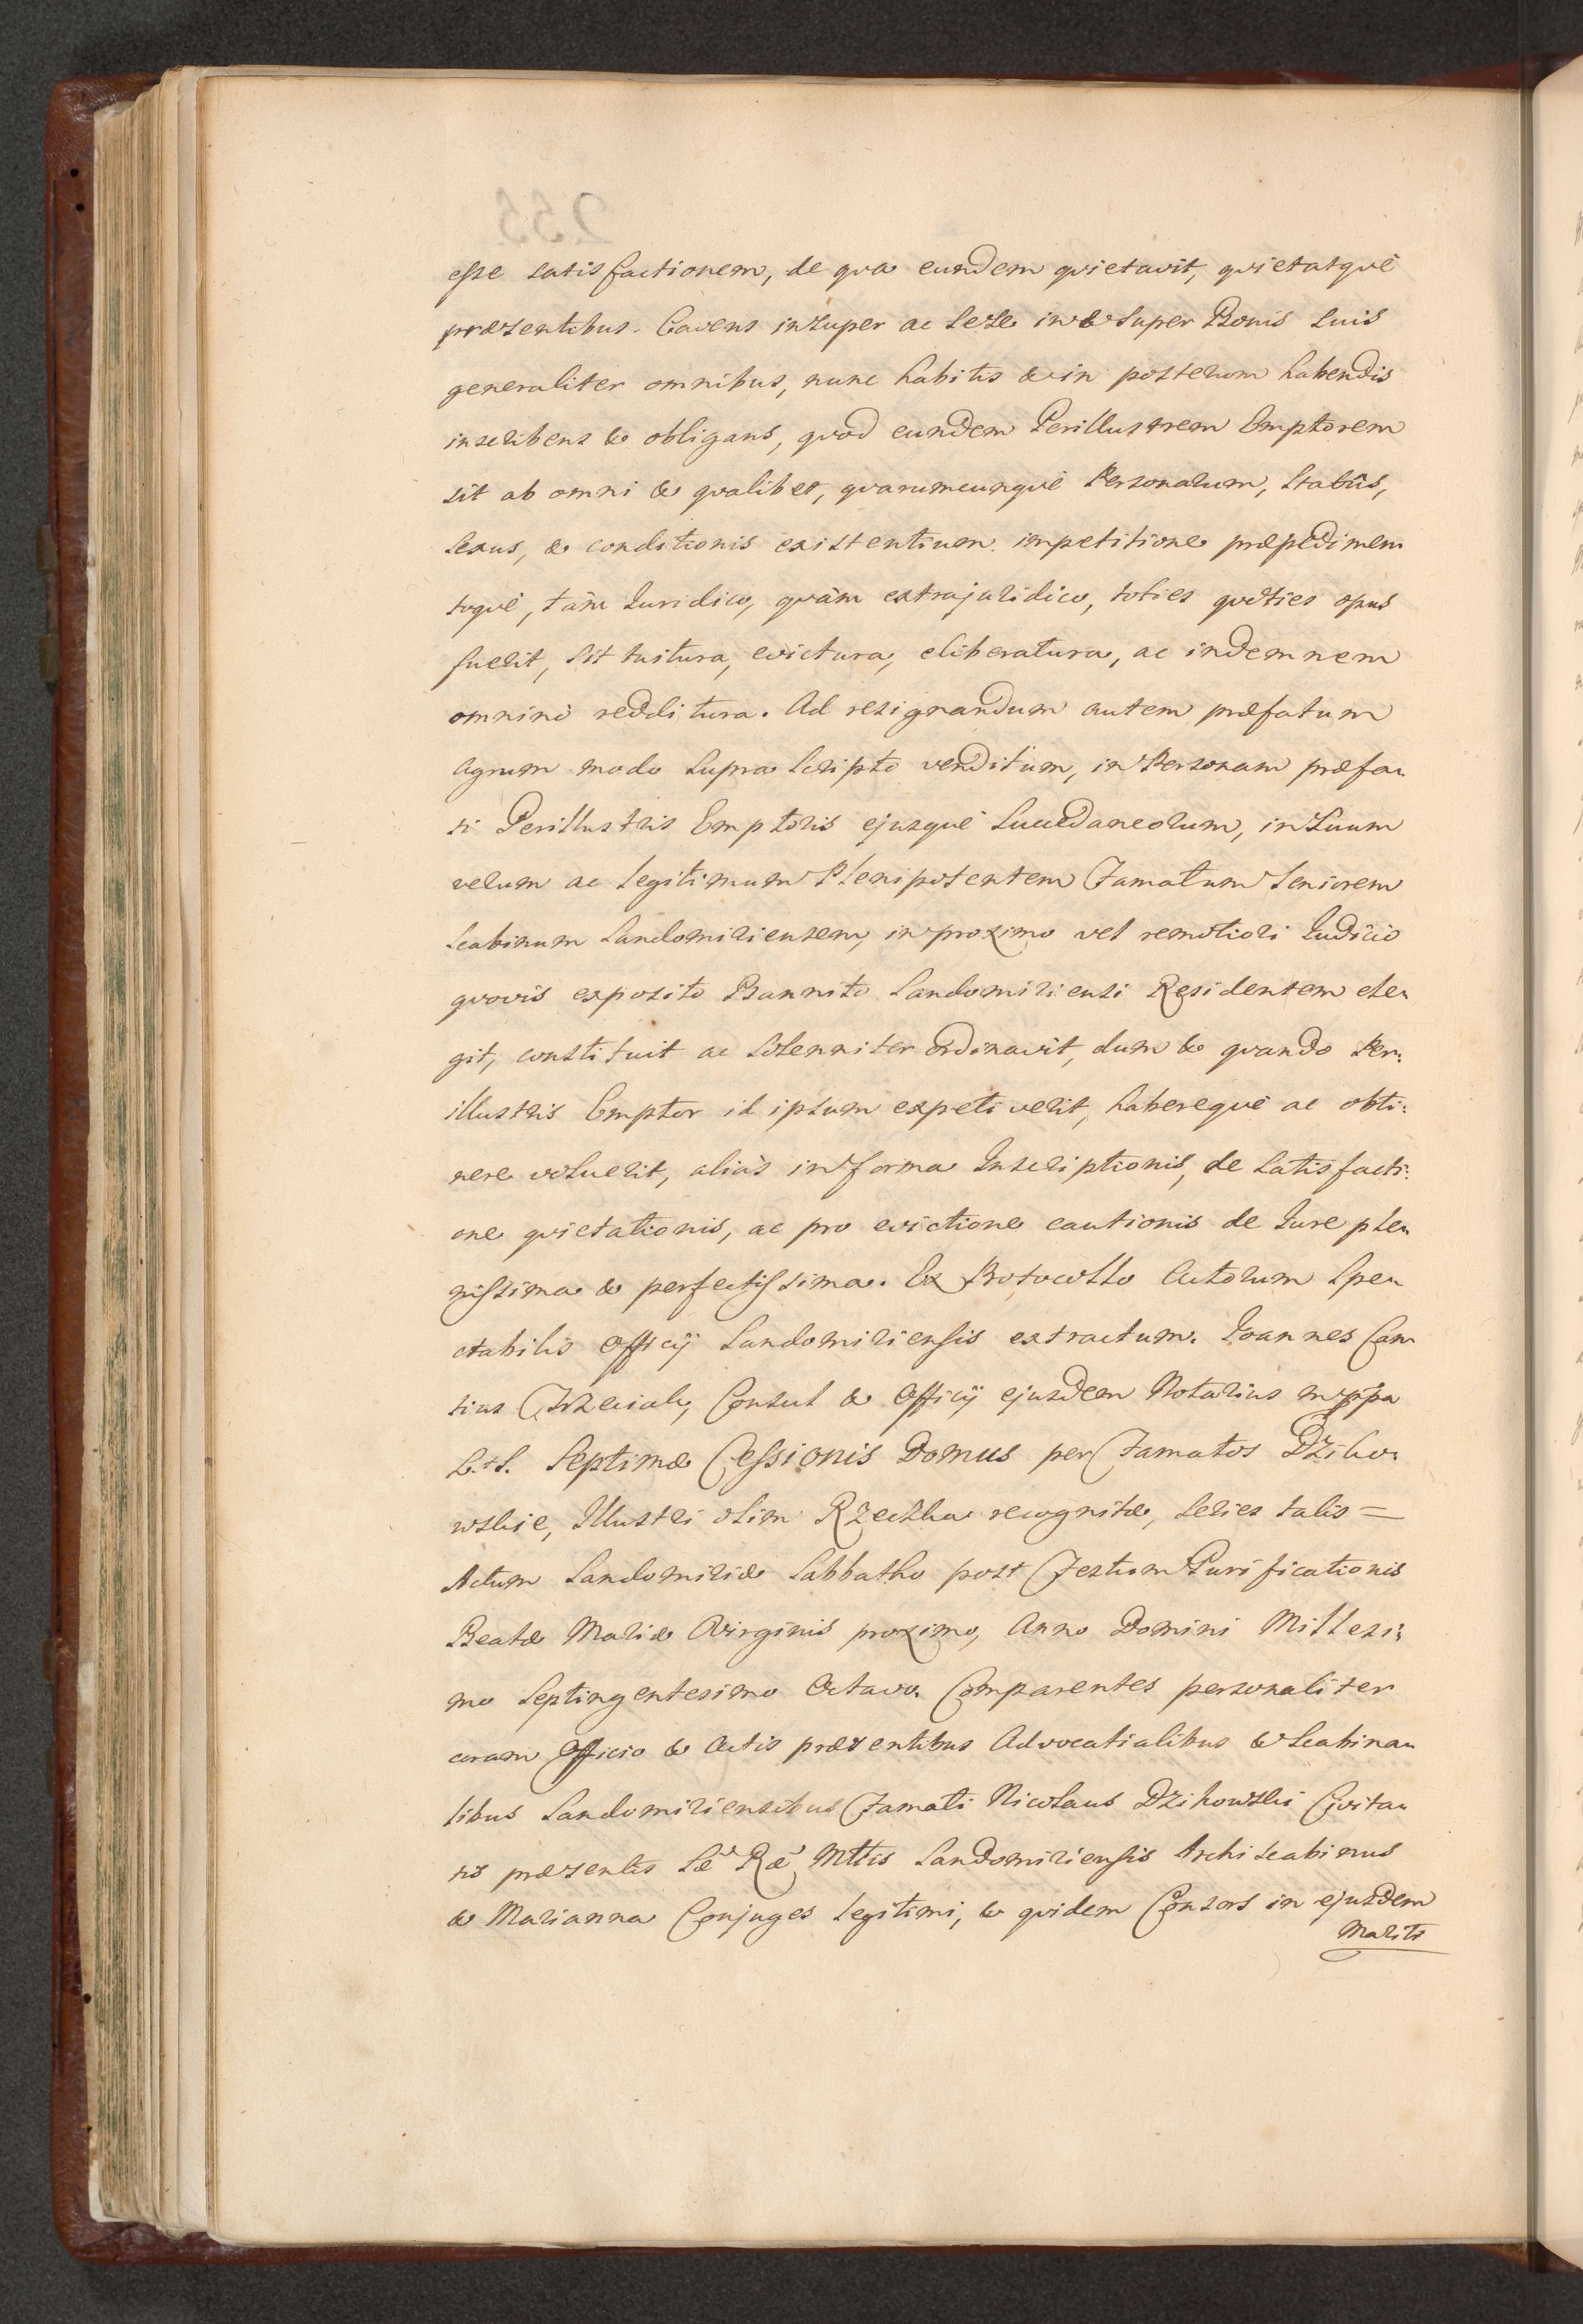 esse satisfactionem, de qva eundem qvietavit, qvietatqvè
præsentibus. Cavens insuper ac sese in & super Bonis suis
generaliter omnibus, nunc habitis & in posterum habendis
inscribens & obligans, qvod eundem Perillustrem Emptorem
sit ab omni & qvalibet, qvarumcunqvè Personarum, Statûs,
sexus, & conditionis existentium impetitione præpedimen
toqvè, tàm Iuridico, qvàm extrajuridico, toties qvoties opus
fuerit, sit tuitura, evictura, eliberatura, ac indemnem
omninò redditura. Ad resignandum autem præfatum
Agrum modo supra scripto venditum, in Personam præfa„
ti Perillustris Emptoris ejusqvè Succedaneorum, in Suum
verum ac legitimum Plenipotentem Famatum Seniorem
Scabinum Sandomiriensem, in proximo vel remotiori Iudicio
qvovis exposito Bannito Sandomiriensi Residentem ele„
git, constituit ac solenniter ordinavit, dum & qvando Per:
illustris Emptor id ipsum expetiverit, habereqvè ac obti:
nere voluerit, aliàs in forma Inscriptionis, de satisfacti:
one qvietationis, ac pro evictione cautionis de Iure ple„
nissima & perfectissima. Ex Protocollo Actorum Spe„
ctabilis Officij Sandomiriensis extractum. Ioannes Can
tius Trzeciak, Consul & Officij ejusdem Notarius mppa
L.+S. Septimæ Cessionis Domus per Famatos Dziko„
wskie, Illustri olim Rzeczka recognitæ, series talis =
Actum Sandomiriæ Sabbatho post Festum Purificationis
Beatæ Mariæ Virginis proximo, Anno Domini Millesi:
mo Septingentesimo Octavo. Comparentes personaliter
coram Officio & Actis præsentibus Advocatialibus & Scabina„
libus Sandomiriensibus Famati Nicolaus Dzikowski Civita„
tis præsentis Sæ Ræ Mttis Sandomiriensis Archiscabinus
& Marianna Conjuges legitimi, & qvidem Consors in ejusdem
Mariti